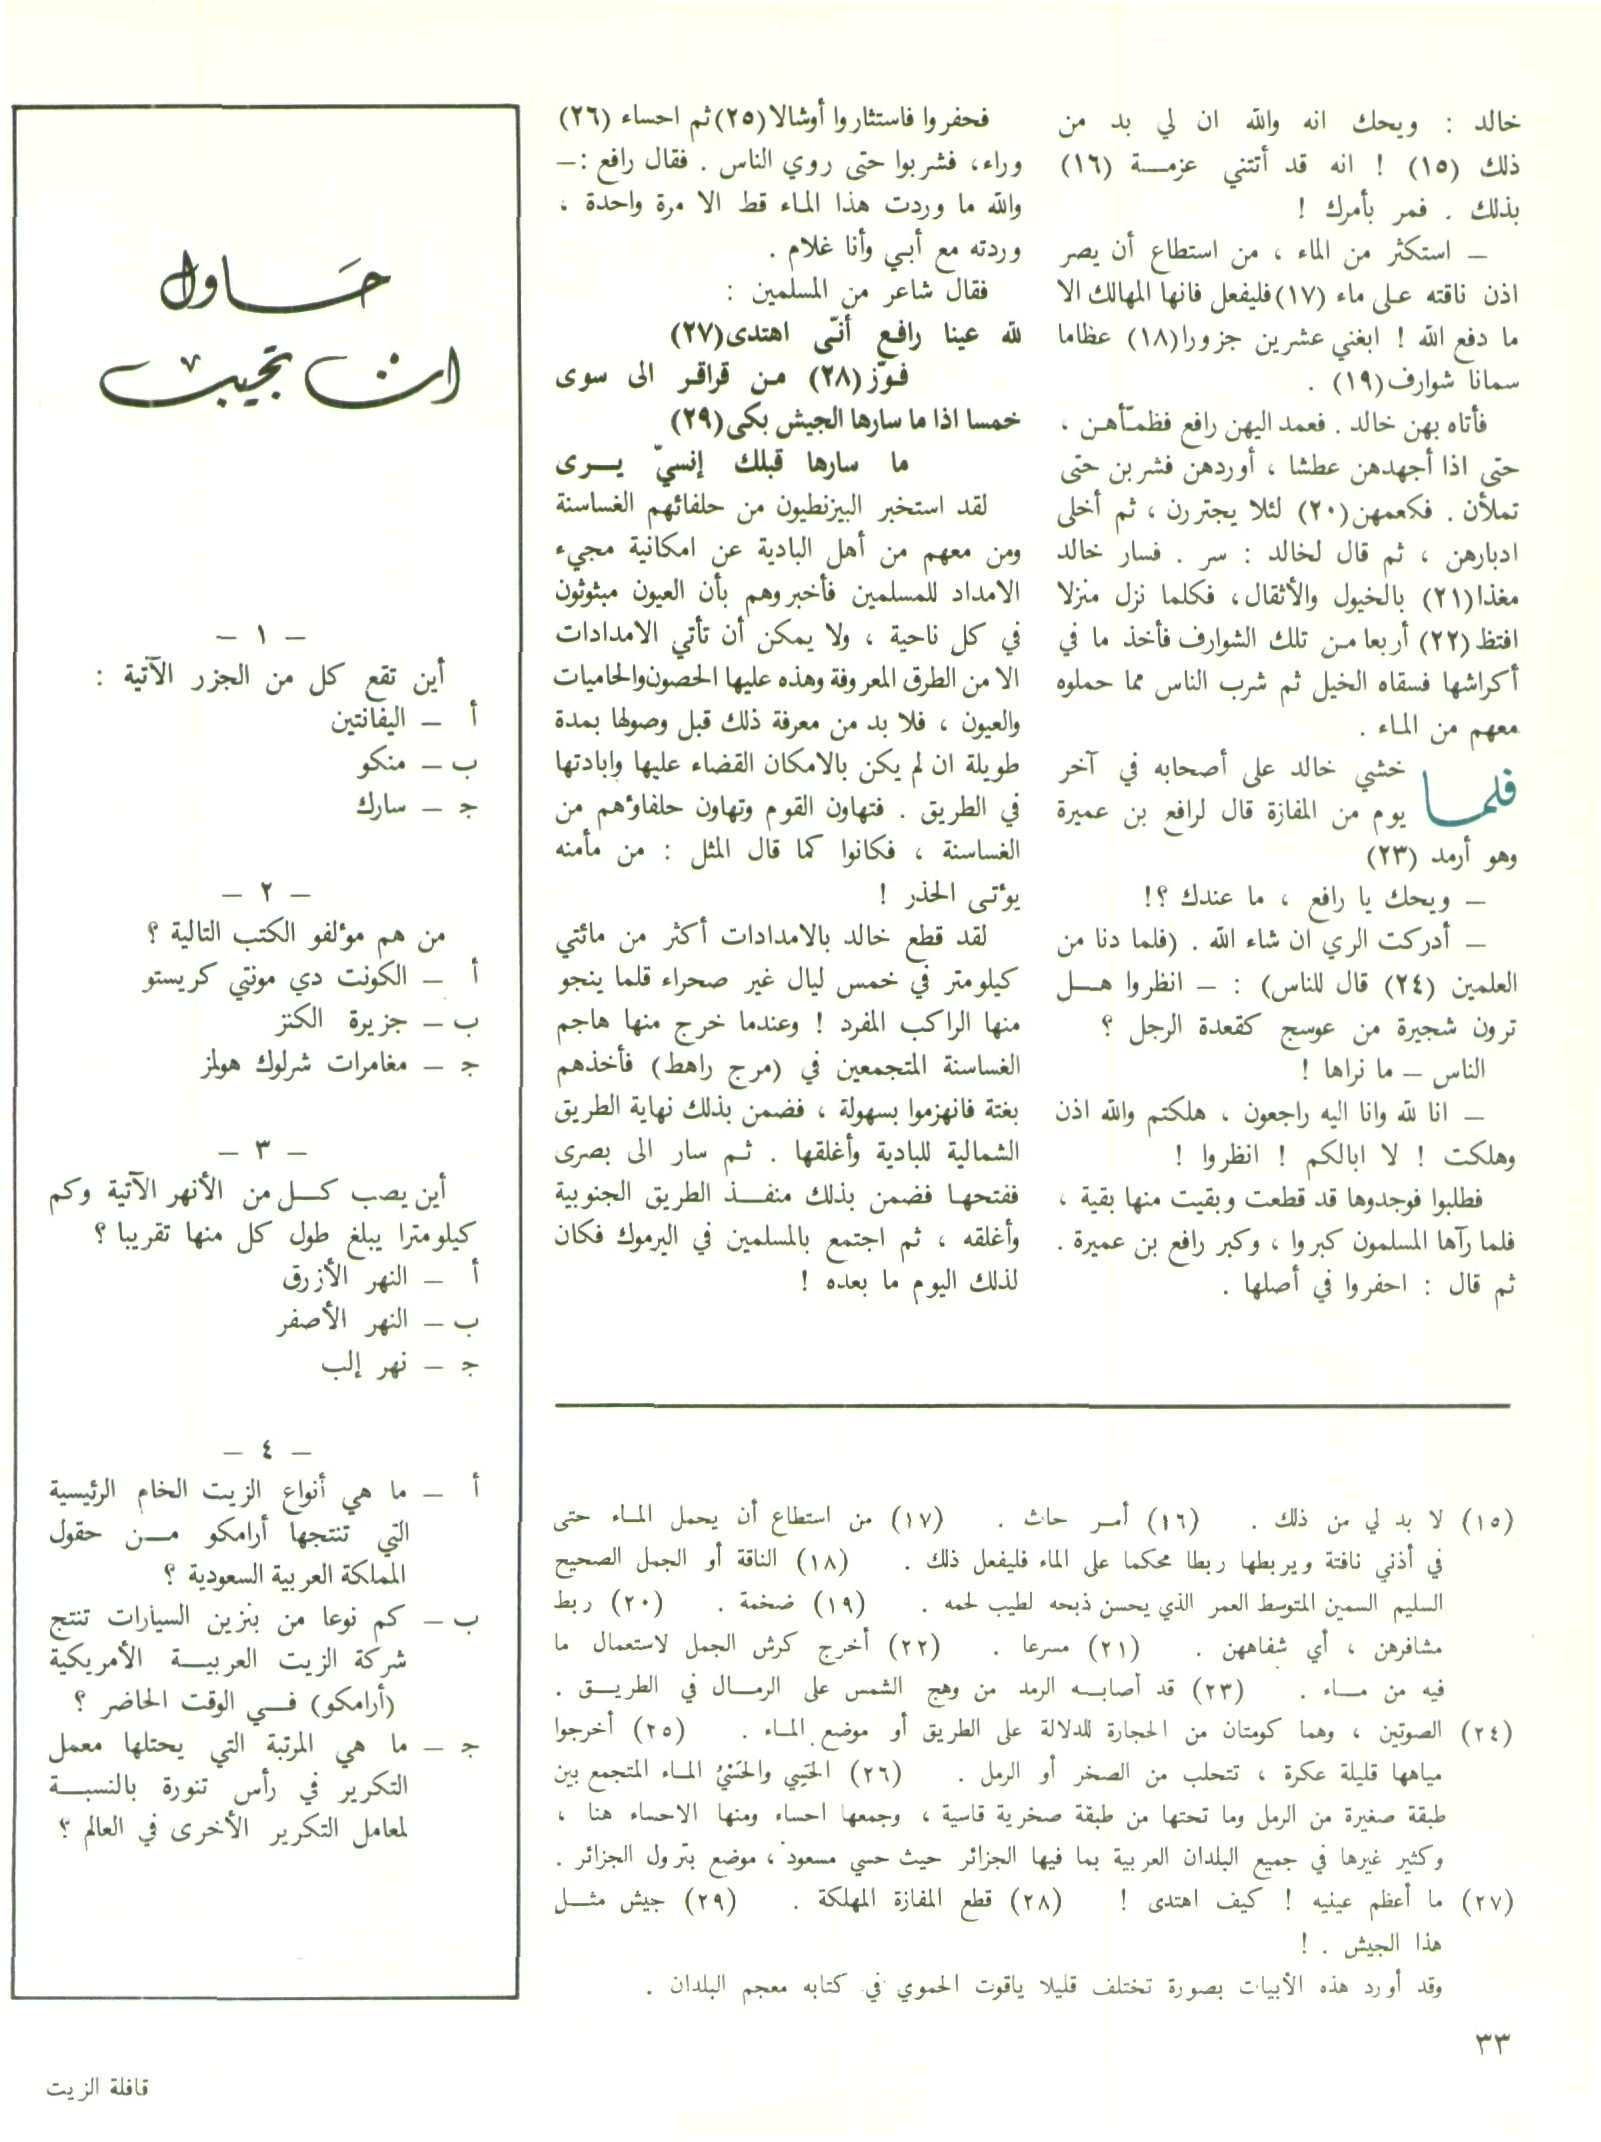 خالد : ويحك انه والله ان لي بد من
ذلك (١٥) ! انه قد أتتني عزمـــة (١٦)
بذلك . فمر بأمرك !
— استكثر من الماء ، من استطاع أن يصر
اذن ناقته على ماء (١٧) فليفعل فانها المهالك الا
ما دفع الله ! ابغني عشرين جزورا(١٨) عظاما
سمانا شوارف(١٩) .
فأتاه بهن خالد . فعمد اليهن رافع فظمّأهـن ،
حتى اذا أجهدهن عطشا ، أوردهن فشربن حتى
تملأن . فكعمهن(٢٠) لئلا يجتررن ، ثم أخلى
ادبارهن ، ثم قال لخالد : سر . فسار خالد
مغذا(٢١) بالخيول والأثقال، فكلما نزل منزلا
افتظ (٢٢) أربعا مـن تلك الشوارف فأخذ ما في
أكراشها فسقاه الخيل ثم شرب الناس مما حملوه
معهم من الماء .
فلمـا خشي خالد على أصحابه في آخر
يوم من المفازة قال لرافع بن عميرة
وهو أرمد (٢٣)
— ويحك يا رافع ، ما عندك ؟!
— أدركت الري ان شاء الله . (فلما دنا من
العلمين (٢٤) قال للناس) : — انظروا هـــل
ترون شجيرة من عوسج كقعدة الرجل ؟
الناس — ما نراها !
— انا لله وانا اليه راجعون ، هلكتم والله اذن
وهلكت ! لا ابالكم ! انظروا !
فطلبوا فوجدوها قد قطعت وبقيت منها بقية ،
فلما رآها المسلمون كبروا ، وكبر رافع بن عميرة .
ثم قال : احفروا في أصلها .
فحفروا فاستثاروا أوشالا(٢٥) ثم احساء (٢٦)
وراء، فشربوا حتى روي الناس . فقال رافع :—
والله ما وردت هذا الماء قط الا مرة واحدة ،
وردته مع أبـي وأنا غلام .
فقال شاعر من المسلمين :
لله عينا رافـع أنـّى اهتدى(٢٧)
فـوّز(٢٨) مـن قراقـر الى سوى
خمسا اذا ما سارها الجيش بكى(٢٩)
ما سارها قبلك إنسيّ يـــرى
لقد استخبر البيزنطيون من حلفائهم الغساسنة
ومن معهم من أهل البادية عن امكانية مجيء
الامداد للمسلمين فأخبروهم بأن العيون مبثوثون
في كل ناحية ، ولا يمكن أن تأتي الامدادات
الا من الطرق المعروفة وهذه عليها الحصون والحاميات
والعيون ، فلا بد من معرفة ذلك قبل وصولها بمدة
طويلة ان لم يكن بالامكان القضاء عليها وابادتها
في الطريق . فتهاون القوم وتهاون حلفاؤهم من
الغساسنة ، فكانوا كما قال المثل : من مأمنه
يؤتـى الحذر !
لقد قطع خالد بالامدادات أكثر من مائتي
كيلومتر في خمس ليال غير صحراء قلما ينجو
منها الراكب المفرد ! وعندما خرج منها هاجم
الغساسنة المتجمعين في (مرج راهط) فأخذهم
بغتة فانهزموا بسهولة ، فضمن بذلك نهاية الطريق
الشمالية للبادية وأغلقها . ثـم سار الى بصرى
ففتحهـا فضمن بذلك منفـــذ الطريق الجنوبية
وأغلقه ، ثم اجتمع بالمسلمين في اليرموك فكان
لذلك اليوم ما بعده !
(١٥) لا بد لي من ذلك . (١٦) أمـر حاث . (١٧) من استطاع أن يحمل المـاء حتى
في أذني نافتة ويربطها ربطا محكما على الماء فليفعل ذلك . (١٨) الناقة أو الجمل الصحيح
السليم السمين المتوسط العمر الذي يحسن ذبحه لطيب لحمه . (١٩) ضخمة . (٢٠) ربط
مشافرهن ، أي شفاههن . (٢١) مسرعا . (٢٢) أخرج كرش الجمل لاستعمال ما
فيه من مـــاء . (٢٣) قد أصابـــه الرمد من وهج الشمس على الرمـــال في الطريـــق .
(٢٤) الصوتين ، وهما كومتان من الحجارة للدلالة على الطريق أو موضع المـاء . (٢٥) أخرجوا
مياهها قليلة عكرة ، تتحلب من الصخر أو الرمل . (٢٦) الحَسِي والحَسْيُ المـاء المتجمع بين
طبقة صغيرة من الرمل وما تحتها من طبقة صخرية قاسية ، وجمعها احساء ومنها الاحساء هنا ،
وكثير غيرها في جميع البلدان العربية بما فيها الجزائر حيث حسي مسعود ، موضع بترول الجزائر .
(٢٧) ما أعظم عينيه ! كيف اهتدى ! (٢٨) قطع المفازة المهلكة . (٢٩) جيش مثـــل
هذا الجيش . !
وقد أورد هذه الأبيات بصورة تختلف قليلا ياقوت الحموي في كتابه معجم البلدان .
حَـــاول
ان تجيب
— ١ —
أين تقع كل من الجزر الآتية :
أ — اليفانتين
ب — منكو
جـ — سارك
— ٢ —
من هم مؤلفو الكتب التالية ؟
أ — الكونت دي مونتي كريستو
ب — جزيرة الكنز
جـ — مغامرات شرلوك هولمز
— ٣ —
أين يصب كـــل من الأنهر الآتية وكم
كيلومترا يبلغ طول كل منها تقريبا ؟
أ — النهر الأزرق
ب — النهر الأصفر
جـ — نهر إلب
— ٤ —
أ — ما هي أنواع الزيت الخام الرئيسية
التي تنتجها أرامكو مـــن حقول
المملكة العربية السعودية ؟
ب — كم نوعا من بنزين السيارات تنتج
شركة الزيت العربيـــة الأمريكية
(أرامكو) فـــي الوقت الحاضر ؟
جـ — ما هي المرتبة التي يحتلها معمل
التكرير في رأس تنورة بالنسبـــة
لمعامل التكرير الأخرى في العالم ؟
٣٣
قافلة الزيت